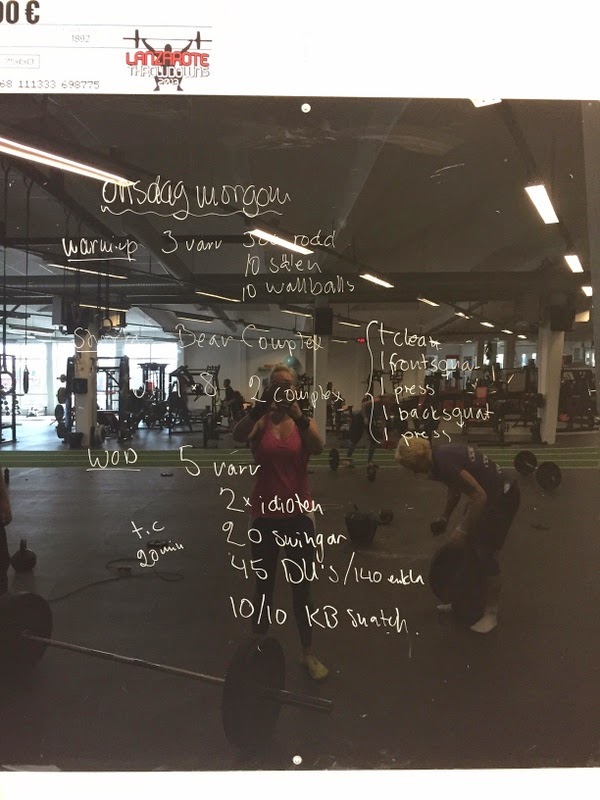 00 €
1892
68 111333 698775
LANZAROTE
THROWDOWNS
2013
onsdag morgon
warm-up 3 varv 300 rodd
10 sälen
10 wallballs
Bear Complex
8 2 complex
1 clean
1 frontsquat
1 press
1. backsquat
1 press
WOD 5 varv
2x idioten
t.c
20 min
20 swingar
45 DU's/140 enkla
10/10 KB snatch.